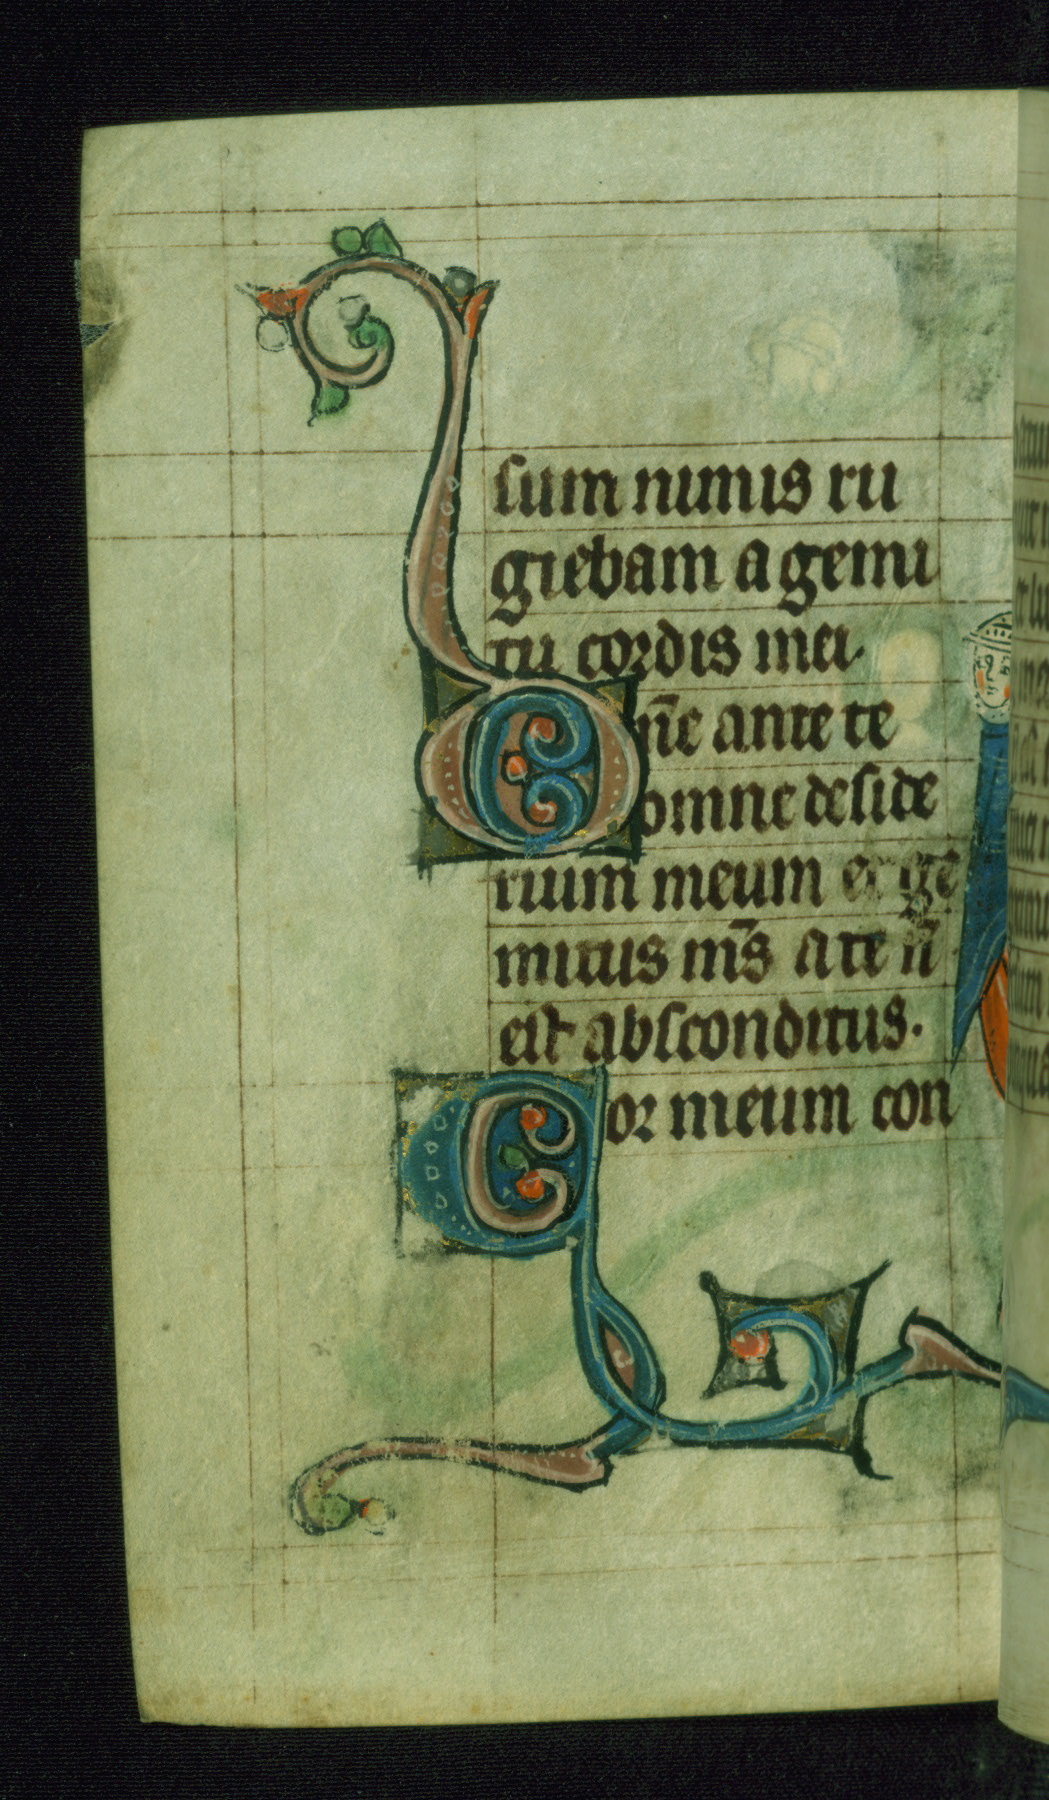 sum nimis ru
giebam a gemi
tu cordis mei.
Dn̄e ante te
omne deside
rium meum et ge
mitus m̄s a te n̄
est absconditus.
Cor meum con